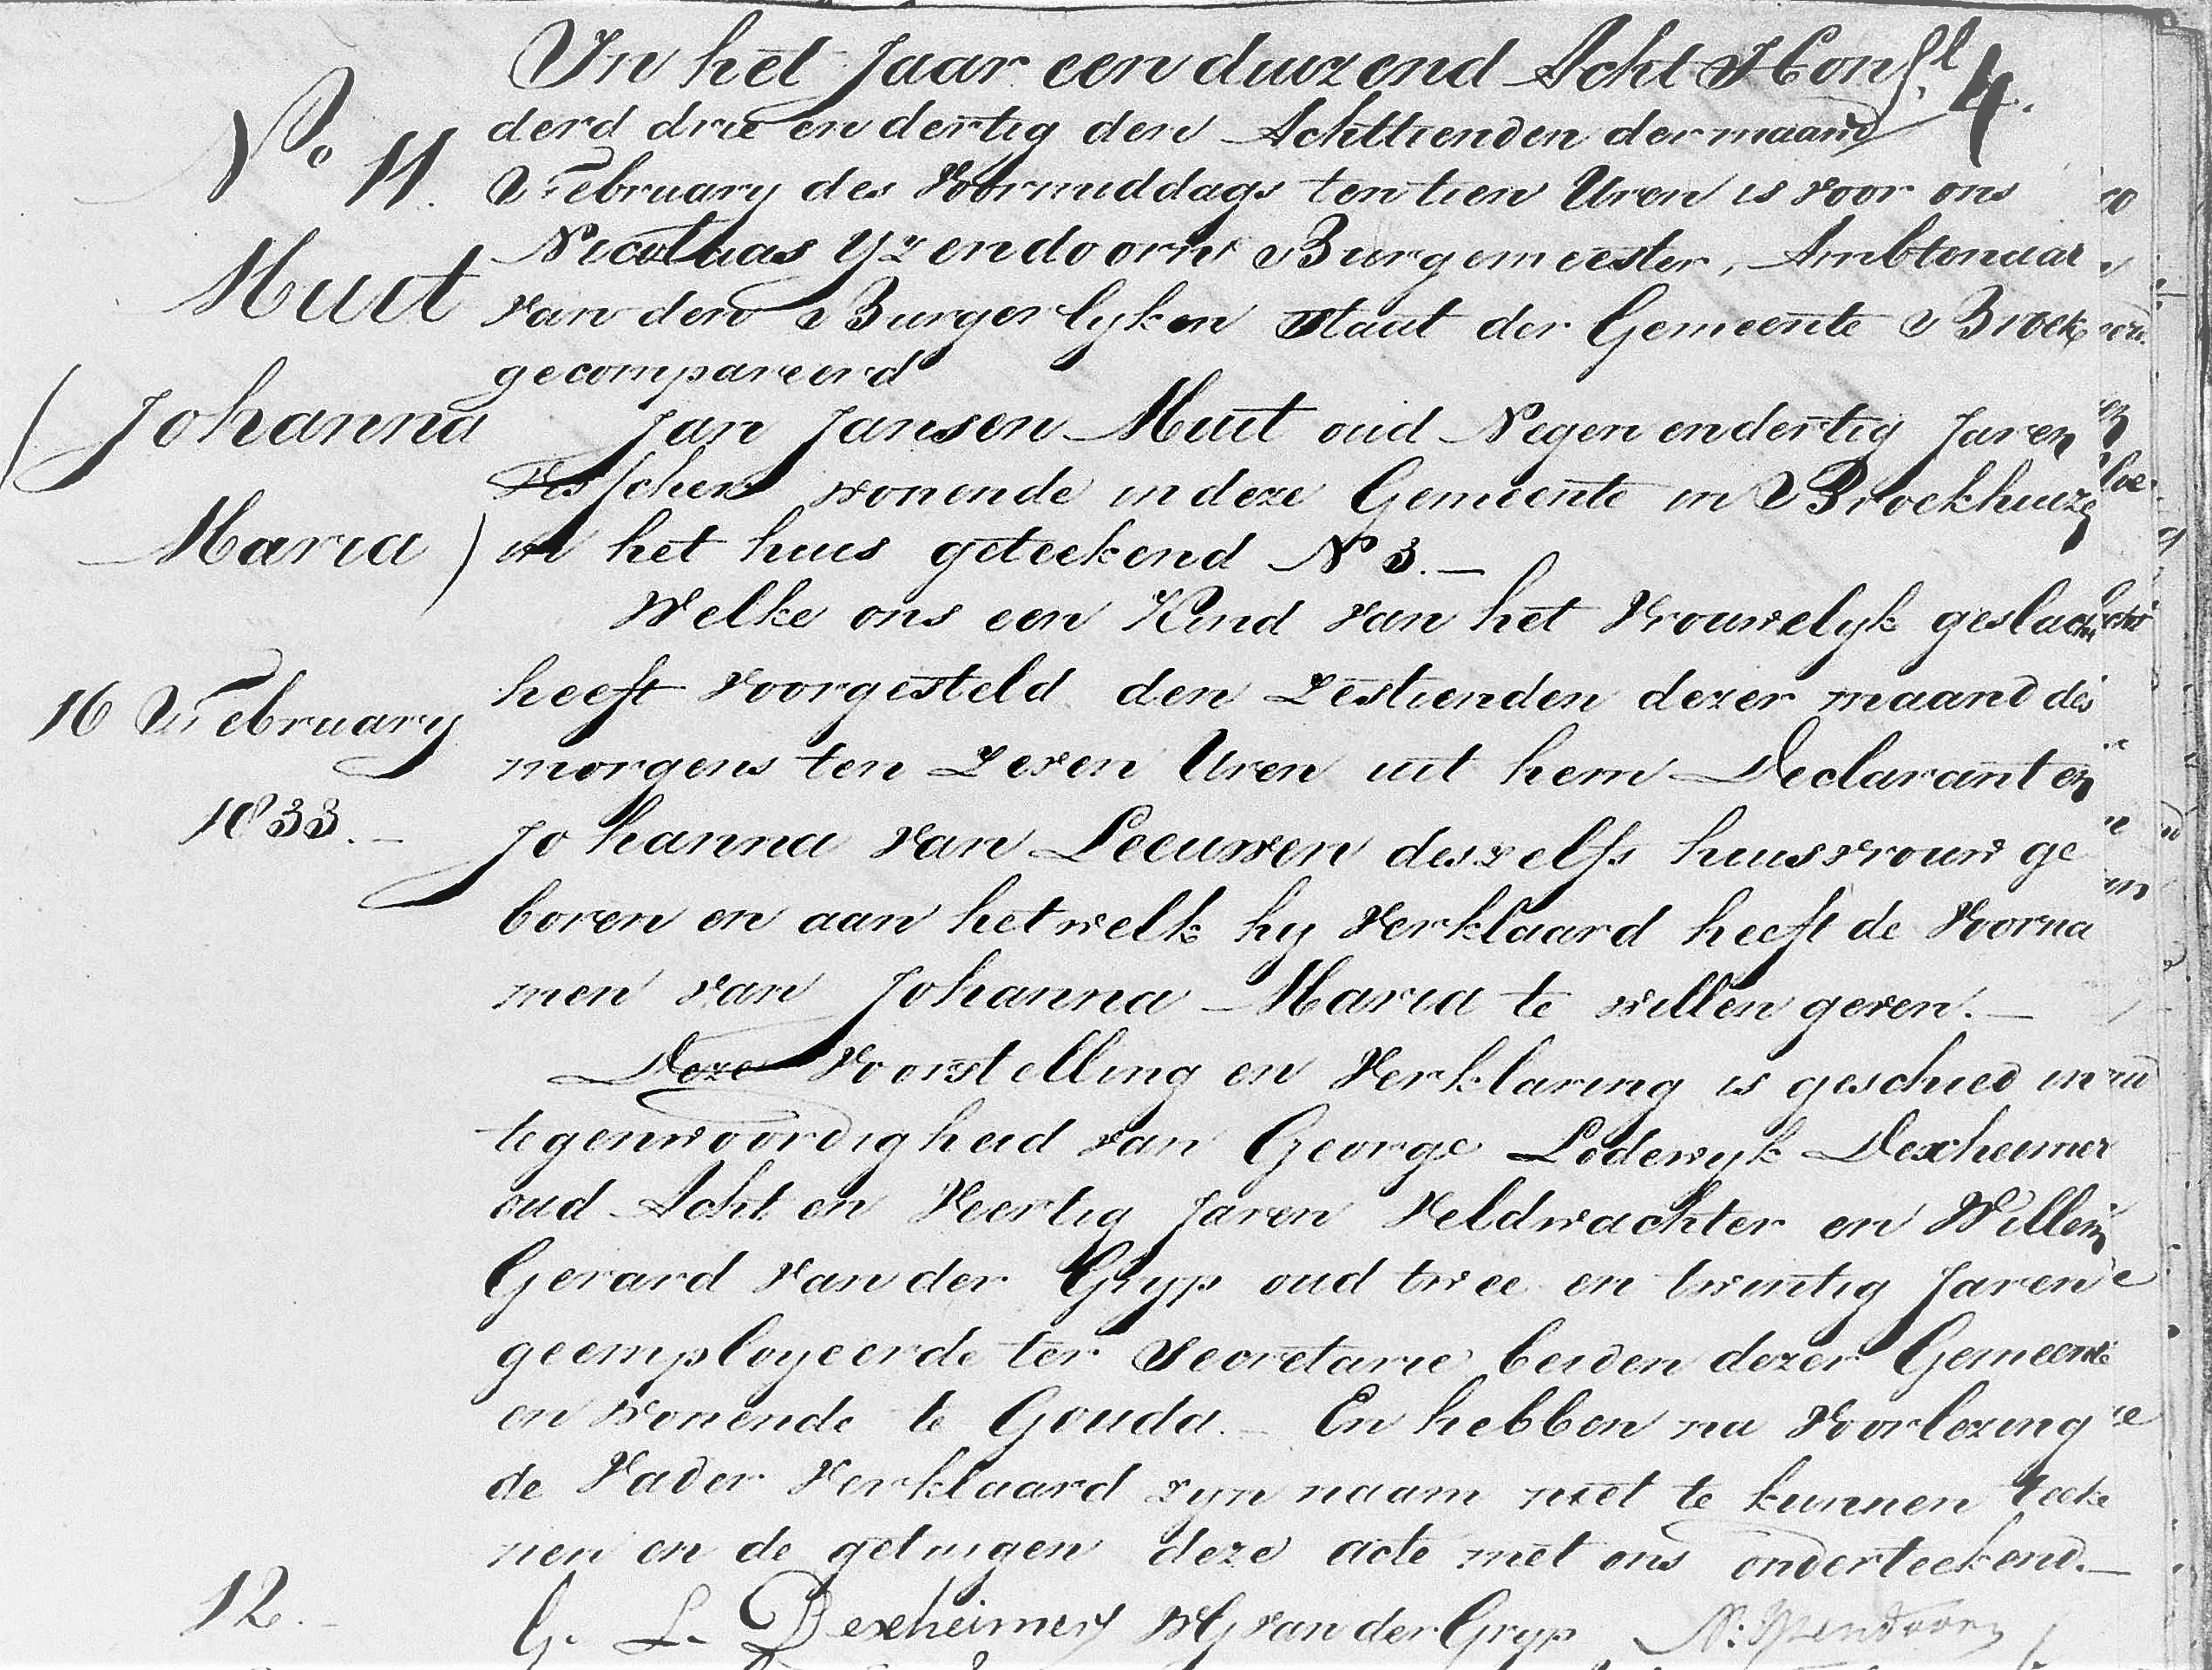 fl 4.
No 11.
Muit
(Johanna
Maria)
16 February
1833.-
In het Jaar een duizend Acht Hon
derd drie en dertig den Achttienden der maand
February des Voormiddags ten tien Uren is voor ons
Nicolaas Yzendoorn Burgemeester, Ambtenaar
van den Burgerlyken Staat der Gemeente Broek
gecompareerd
Jan Jansen Muit oud Negen en dertig Jaren
Visscher wonende in deze Gemeente in Broekhuize
in het huis geteekend No 3.-
Welke ons een Kind van het Vrouwelyk geslacht
heeft voorgesteld den Zestienden dezer maand des
morgens ten Zeven Uren uit hem Declarant en
Johanna van Leeuwen deszelfs huisvrouw ge
boren en aan hetwelk hy Verklaard heeft de Voorna
men van Johanna Maria te willen geven.-
Deze Voorstelling en Verklaring is geschied in
tegenwoordigheid van George Lodewyk Dexheimer
oud Acht en Veertig Jaren Veldwachter en Willem
Gerard van der Gryp oud twee en twintig Jaren
geemployeerde ter Secretarie beiden dezer Gemeente
en wonende te Gouda.- En hebben na Voorlezing
de Vader Verklaard zyn naam niet te kunnen teeke
nen en de getuigen deze acte met ons onderteekend.-
G. L. Dexheimer WG van der Gryp N: Yzendoorn
12.-